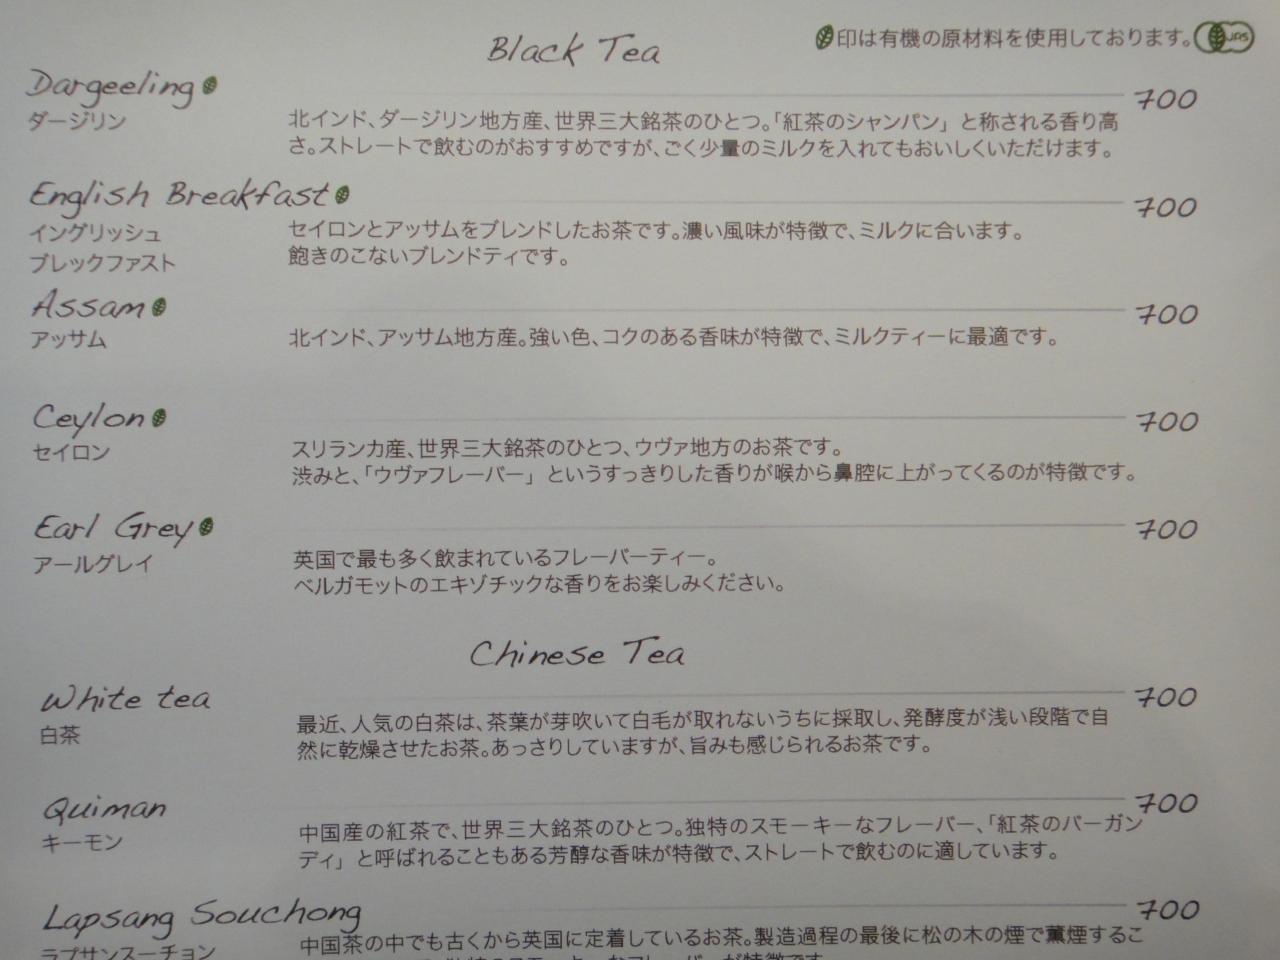 Black Tea
印は有機の原材料を使用しております。 JAS
Dargeeling 700
ダージリン
北インド、ダージリン地方産、世界三大銘茶のひとつ。「紅茶のシャンパン」と称される香り高
さ。ストレートで飲むのがおすすめですが、ごく少量のミルクを入れてもおいしくいただけます。
English Breakfast 700
イングリッシュ
ブレックファスト
セイロンとアッサムをブレンドしたお茶です。濃い風味が特徴で、ミルクに合います。
飽きのこないブレンドティです。
Assam 700
アッサム
北インド、アッサム地方産。強い色、コクのある香味が特徴で、ミルクティーに最適です。
Ceylon 700
セイロン
スリランカ産、世界三大銘茶のひとつ、ウヴァ地方のお茶です。
渋みと、「ウヴァフレーバー」というすっきりした香りが喉から鼻腔に上がってくるのが特徴です。
Earl Grey 700
アールグレイ
英国で最も多く飲まれているフレーバーティー。
ベルガモットのエキゾチックな香りをお楽しみください。
Chinese Tea
White tea 700
白茶
最近、人気の白茶は、茶葉が芽吹いて白毛が取れないうちに採取し、発酵度が浅い段階で自
然に乾燥させたお茶。あっさりしていますが、旨みも感じられるお茶です。
Quiman 700
キーモン
中国産の紅茶で、世界三大銘茶のひとつ。独特のスモーキーなフレーバー、「紅茶のバーガン
ディ」と呼ばれることもある芳醇な香味が特徴で、ストレートで飲むのに適しています。
Lapsang Souchong 700
ラプサンスーチョン
中国茶の中でも古くから英国に定着しているお茶。製造過程の最後に松の木の煙で薫煙するこ